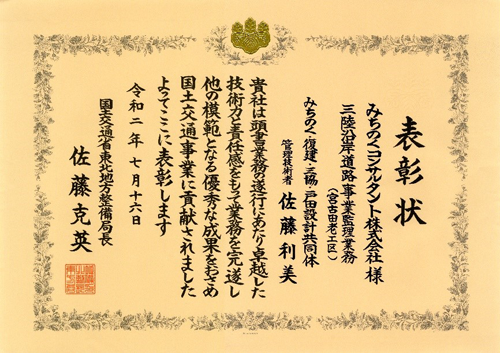 表彰状
みちのくコンサルタント株式会社 様
三陸沿岸道路事業監理業務
（宮古田老工区）
みちのく・復建・三協・戸田設計共同体
管理技術者 佐藤利美
貴社は頭書業務の遂行にあたり卓越した
技術力と責任感をもって業務を完遂し
他の模範となる優秀な成果をおさめ
国土交通事業に貢献されました
よってここに表彰します
令和二年七月十六日
国土交通省東北地方整備局長
佐藤克英